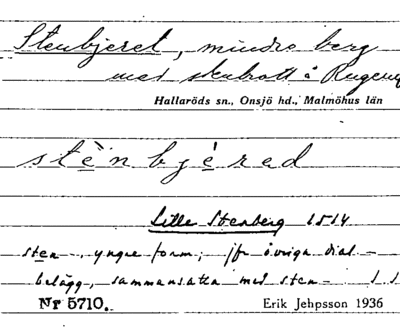 Stenbjeret, mindre berg
med stenbrott å
Hallaröds sn., Onsjö hd., Malmöhus län
stènbjérad
Lille Stenberg 1514
sten- yngre form; jfr övriga dial-
belägg, sammansatta med sten-
Nr 5710. Erik Jehpsson 1936